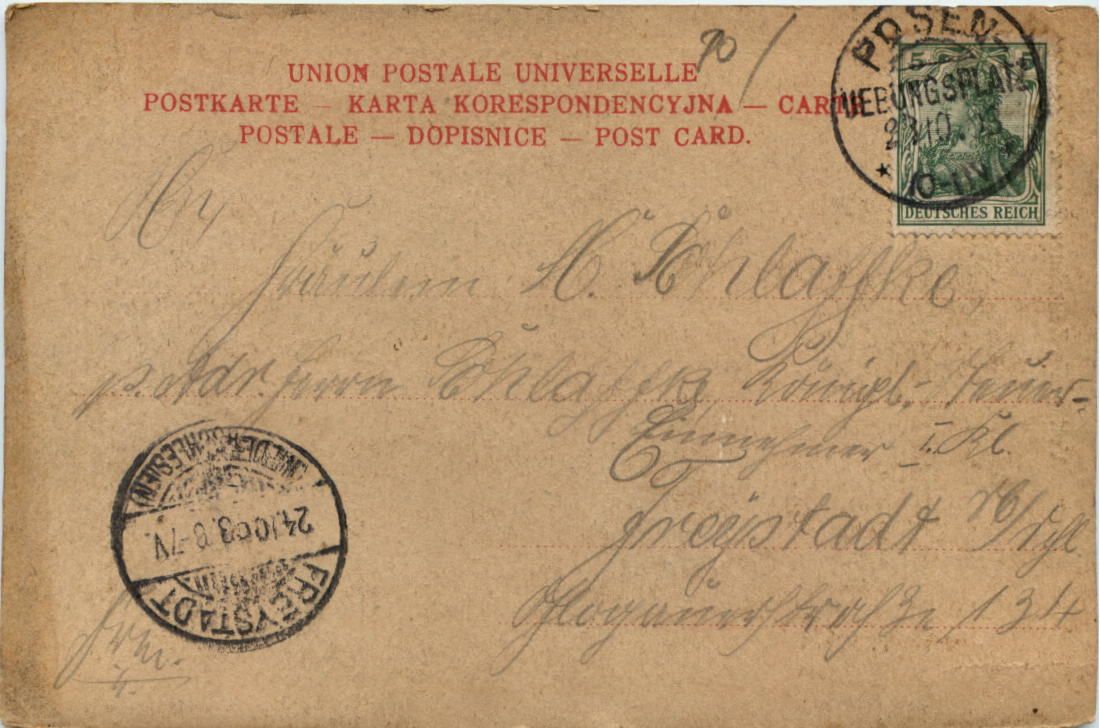 UNION POSTALE UNIVERSELLE
POSTKARTE — KARTA KORESPONDENCYJNA — CARTE
POSTALE — DOPISNICE — POST CARD.
POSEN
UEBUNGSPLATZ
5 5
DEUTSCHES REICH
An
Fräulein M. Schlaffke,
p. Adr. Herrn Schlaffke, Königl. Steuer-
Einnehmer I. Kl.
Freystadt
Glogauerstraße 134
(NIEDERSCHLESIEN)
24.10.03. 6-7V.
FREYSTADT